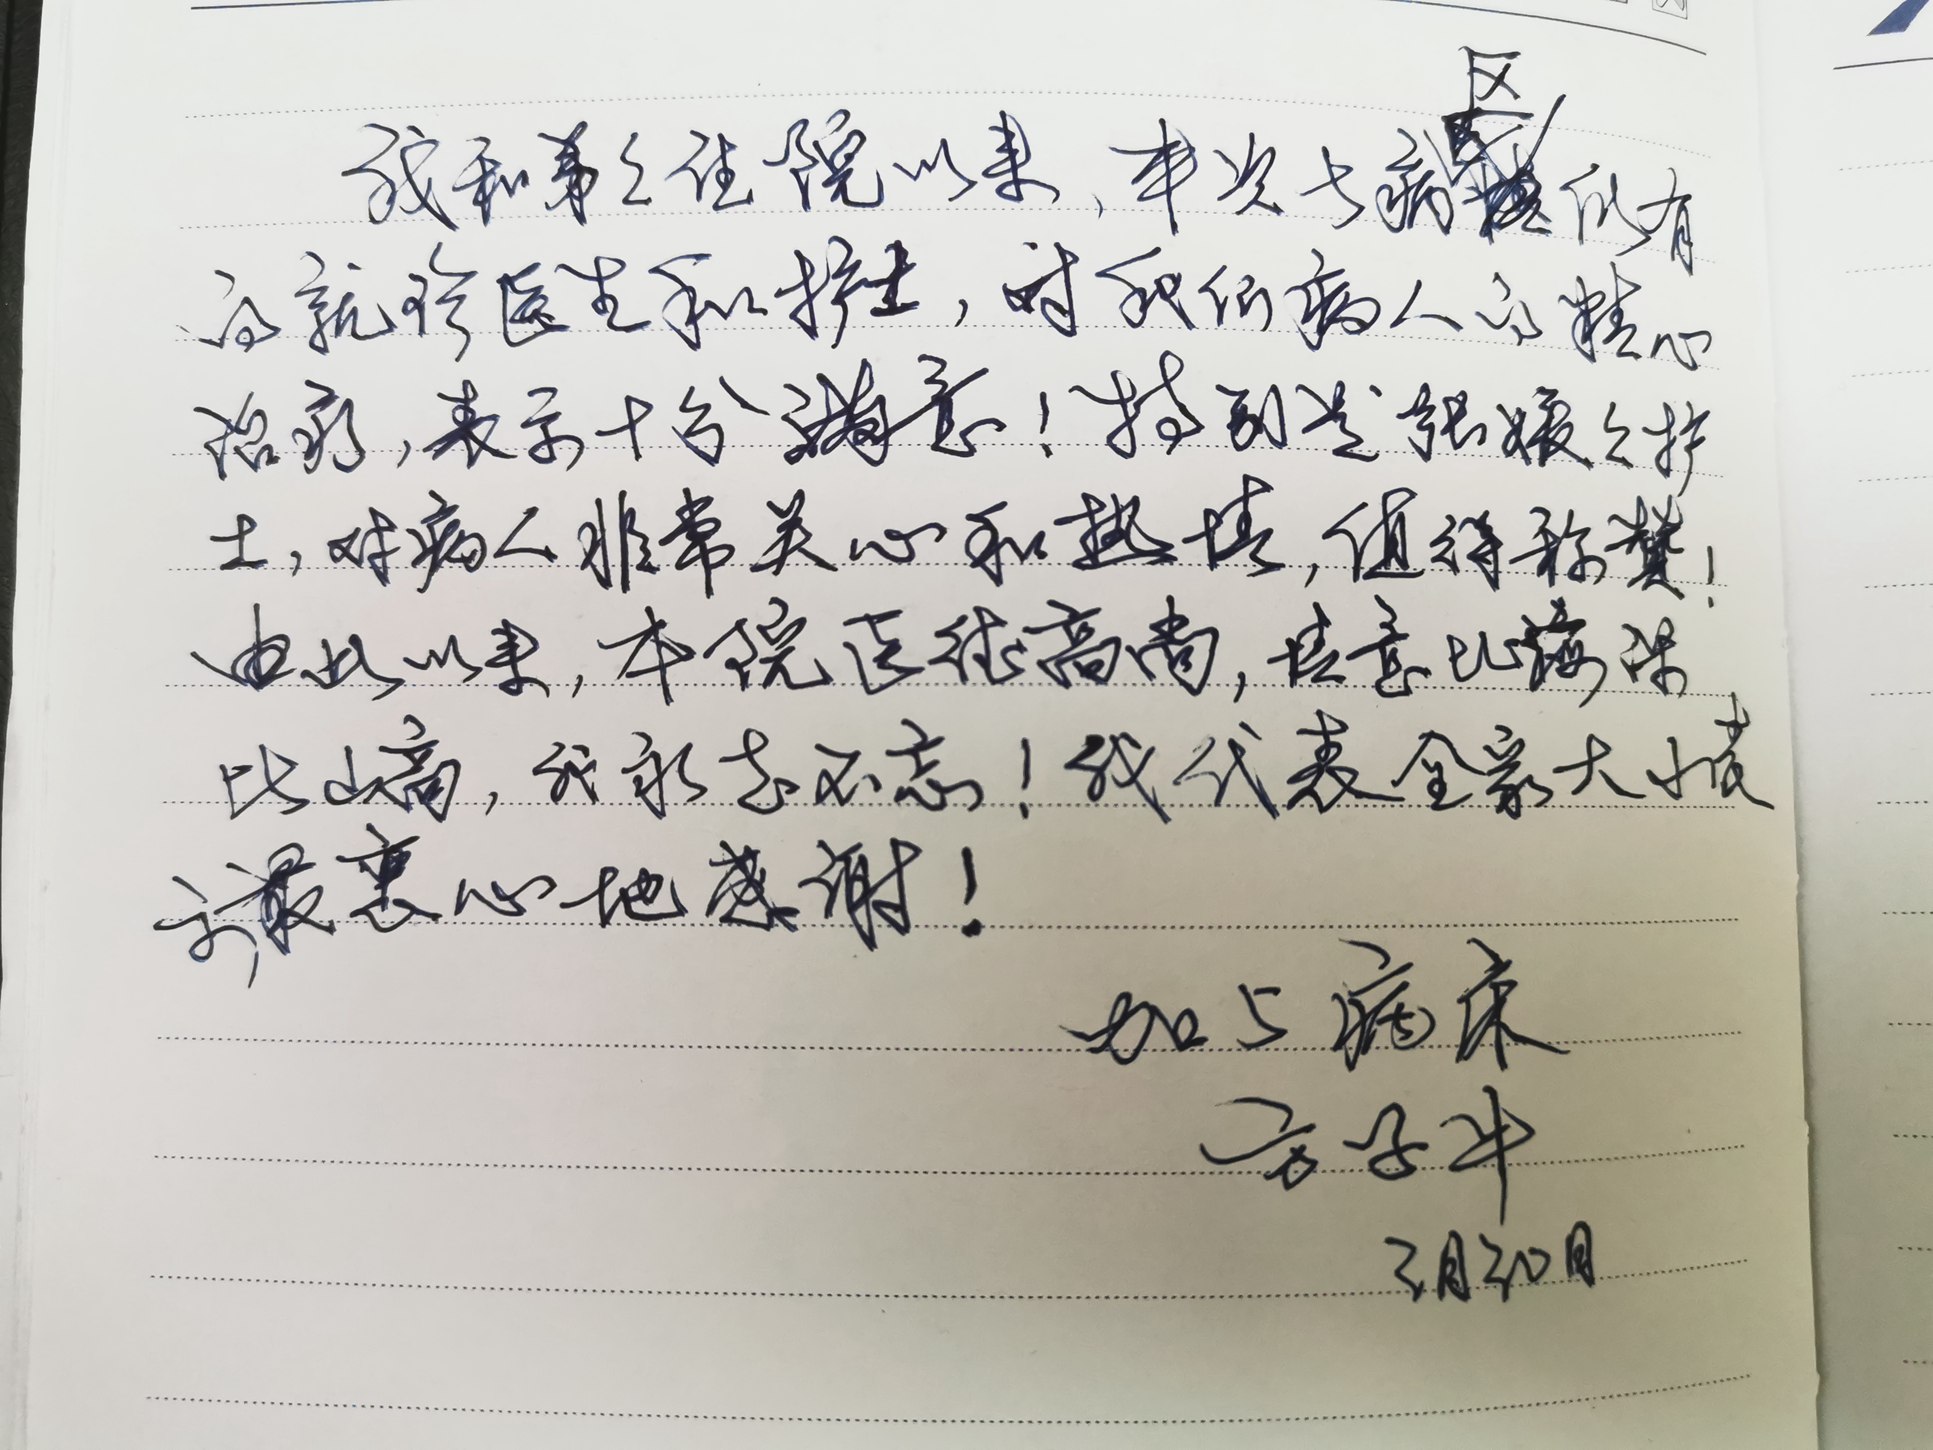 我和弟弟住院以来，本次七病区所有
的就珍医生和护士，对我们病人的精心
治疗，表示十分满意！特别是张媛媛护
士，对病人非常关心和热情，值得称赞！
由此以来，本院医德高尚，情意比海深
比山高，我永志不忘！我代表全家大小表
示最衷心地感谢！
加5病床
方子牛
3月30日